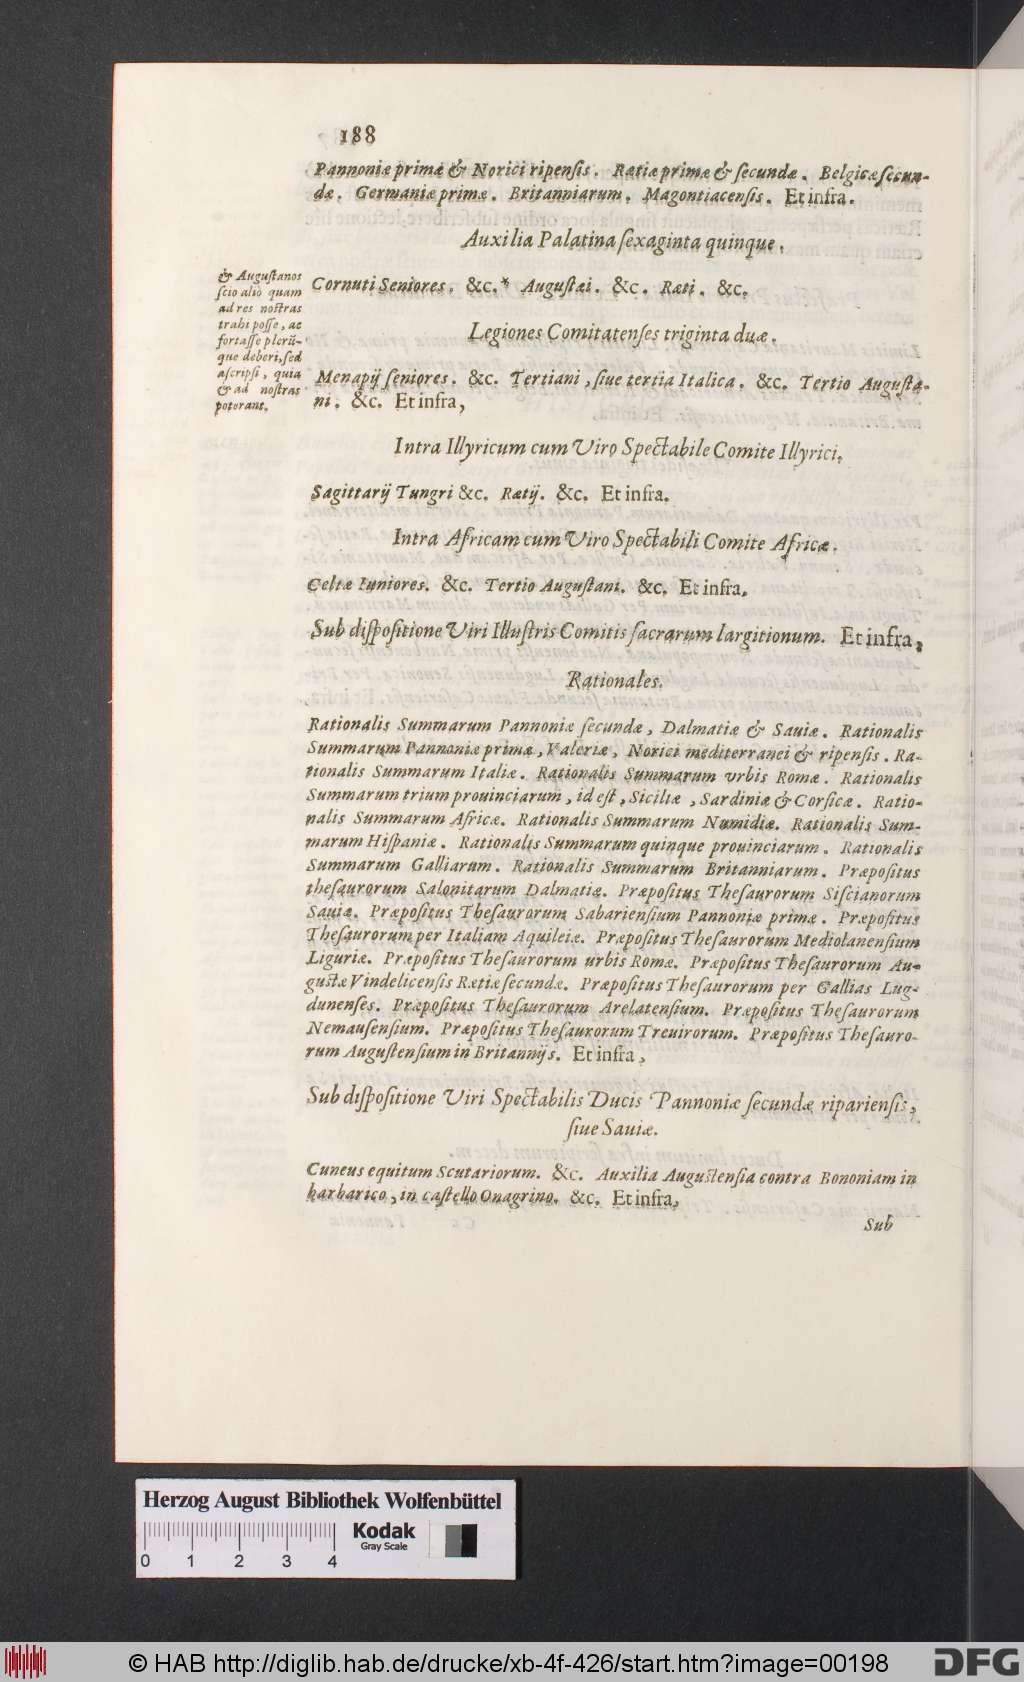 188
Pannoniæ primæ & Norici ripenſis. Rætiæ primæ & ſecundæ. Belgicæ ſecun-
dæ. Germaniæ primæ. Britanniarum. Magontiacenſis. Et infra.
Auxilia Palatina ſexaginta quinque.
& Auguſtanos
ſcio aliò quam
ad res noſtras
trahi poſſe, ac
fortaſſe plerũ-
que deberi, ſed
aſcripſi, quia
& ad noſtras
poterant.
Cornuti Seniores. &c.* Auguſtæi. &c. Ræti. &c.
Legiones Comitatenſes triginta duæ.
Menapij ſeniores. &c. Tertiani, ſiue tertia Italica. &c. Tertio Auguſta-
ni. &c. Et infra,
Intra Illyricum cum Viro Spectabile Comite Illyrici.
Sagittarij Tungri &c. Rætij. &c. Et infra.
Intra Africam cum Viro Spectabili Comite Africæ.
Celtæ Iuniores. &c. Tertio Auguſtani. &c. Et infra.
Sub diſpoſitione Viri Illuſtris Comitis ſacrarum largitionum. Et infra,
Rationales.
Rationalis Summarum Pannoniæ ſecundæ, Dalmatiæ & Sauiæ. Rationalis
Summarum Pannoniæ primæ, Valeriæ, Norici mediterranei & ripenſis. Ra-
tionalis Summarum Italiæ. Rationalis Summarum vrbis Romæ. Rationalis
Summarum trium prouinciarum, id eſt, Siciliæ, Sardiniæ & Corſicæ. Ratio-
nalis Summarum Africæ. Rationalis Summarum Numidiæ. Rationalis Sum-
marum Hiſpaniæ. Rationalis Summarum quinque prouinciarum. Rationalis
Summarum Galliarum. Rationalis Summarum Britanniarum. Præpoſitus
theſaurorum Salonitarum Dalmatiæ. Præpoſitus Theſaurorum Siſcianorum
Sauiæ. Præpoſitus Theſaurorum Sabarienſium Pannoniæ primæ. Præpoſitus
Theſaurorum per Italiam Aquileiæ. Præpoſitus Theſaurorum Mediolanenſium
Liguriæ. Præpoſitus Theſaurorum urbis Romæ. Præpoſitus Theſaurorum Au-
guſtæ Vindelicenſis Rætiæ ſecundæ. Præpoſitus Theſaurorum per Gallias Lug-
dunenſes. Præpoſitus Theſaurorum Arelatenſium. Præpoſitus Theſaurorum
Nemauſenſium. Præpoſitus Theſaurorum Treuirorum. Præpoſitus Theſauro-
rum Auguſtenſium in Britannijs. Et infra,
Sub diſpoſitione Viri Spectabilis Ducis Pannoniæ ſecundæ riparienſis,
ſiue Sauiæ.
Cuneus equitum Scutariorum. &c. Auxilia Auguſtenſia contra Bononiam in
barbarico, in caſtello Onagrino. &c. Et infra,
Sub
Herzog August Bibliothek Wolfenbüttel
Kodak
Gray Scale
0 1 2 3 4
© HAB http://diglib.hab.de/drucke/xb-4f-426/start.htm?image=00198
DFG